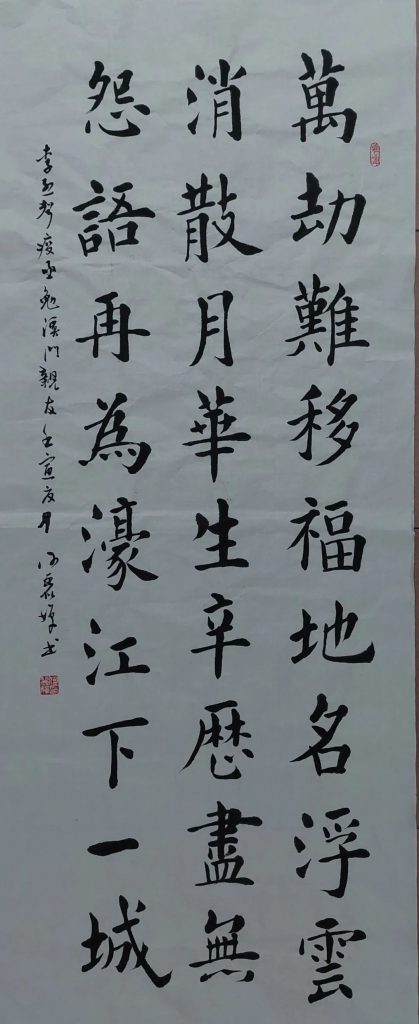 萬劫難移福地名浮雲
消散月華生辛歷盡無
怨語再為濠江下一城
李 聲疫 勉濠門親友壬寅 月 書